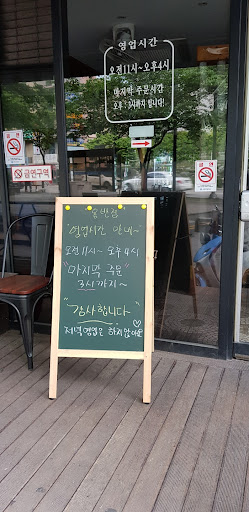 영업시간
오전11시~오후4시
마지막 주문시간
오후 3시까지 입니다!
금연
금연
금연구역
영업시간 안내~
오전11시~ 오후4시
"마지막 주문"
3시까지~
"감사합니다"
저녁영업은 하지않아요